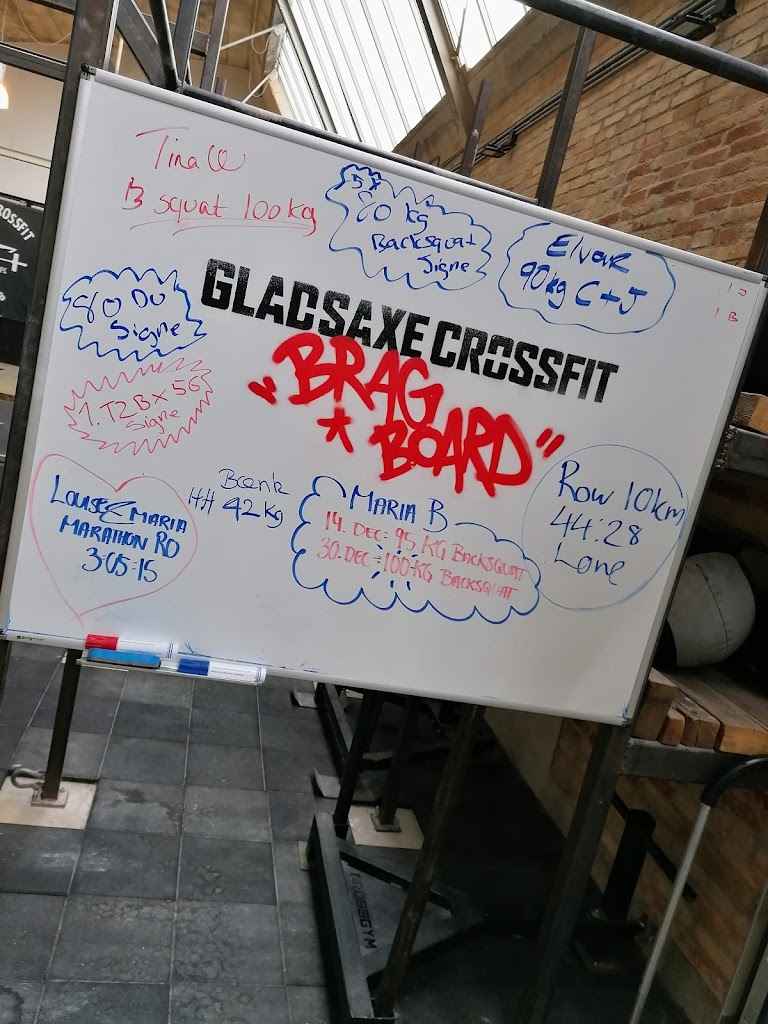 Tina W
B squat 100kg
5x
80 kg
Backsquat
Signe
Elvar
90kg C+J
GLADSAXE CROSSFIT
"BRAG
* BOARD"
80 DU
Signe
1. T2B x 56
Signe
LOUISE & MARIA
MARATHON RO
3:05:15
Bænk
HH 42 kg
MARIA B
14. DEC: 95 KG BACKSQUAT
30. DEC: 100 KG BACKSQUAT
Row 10km
44:28
Lone
CROSSFIT
CROSSGYM